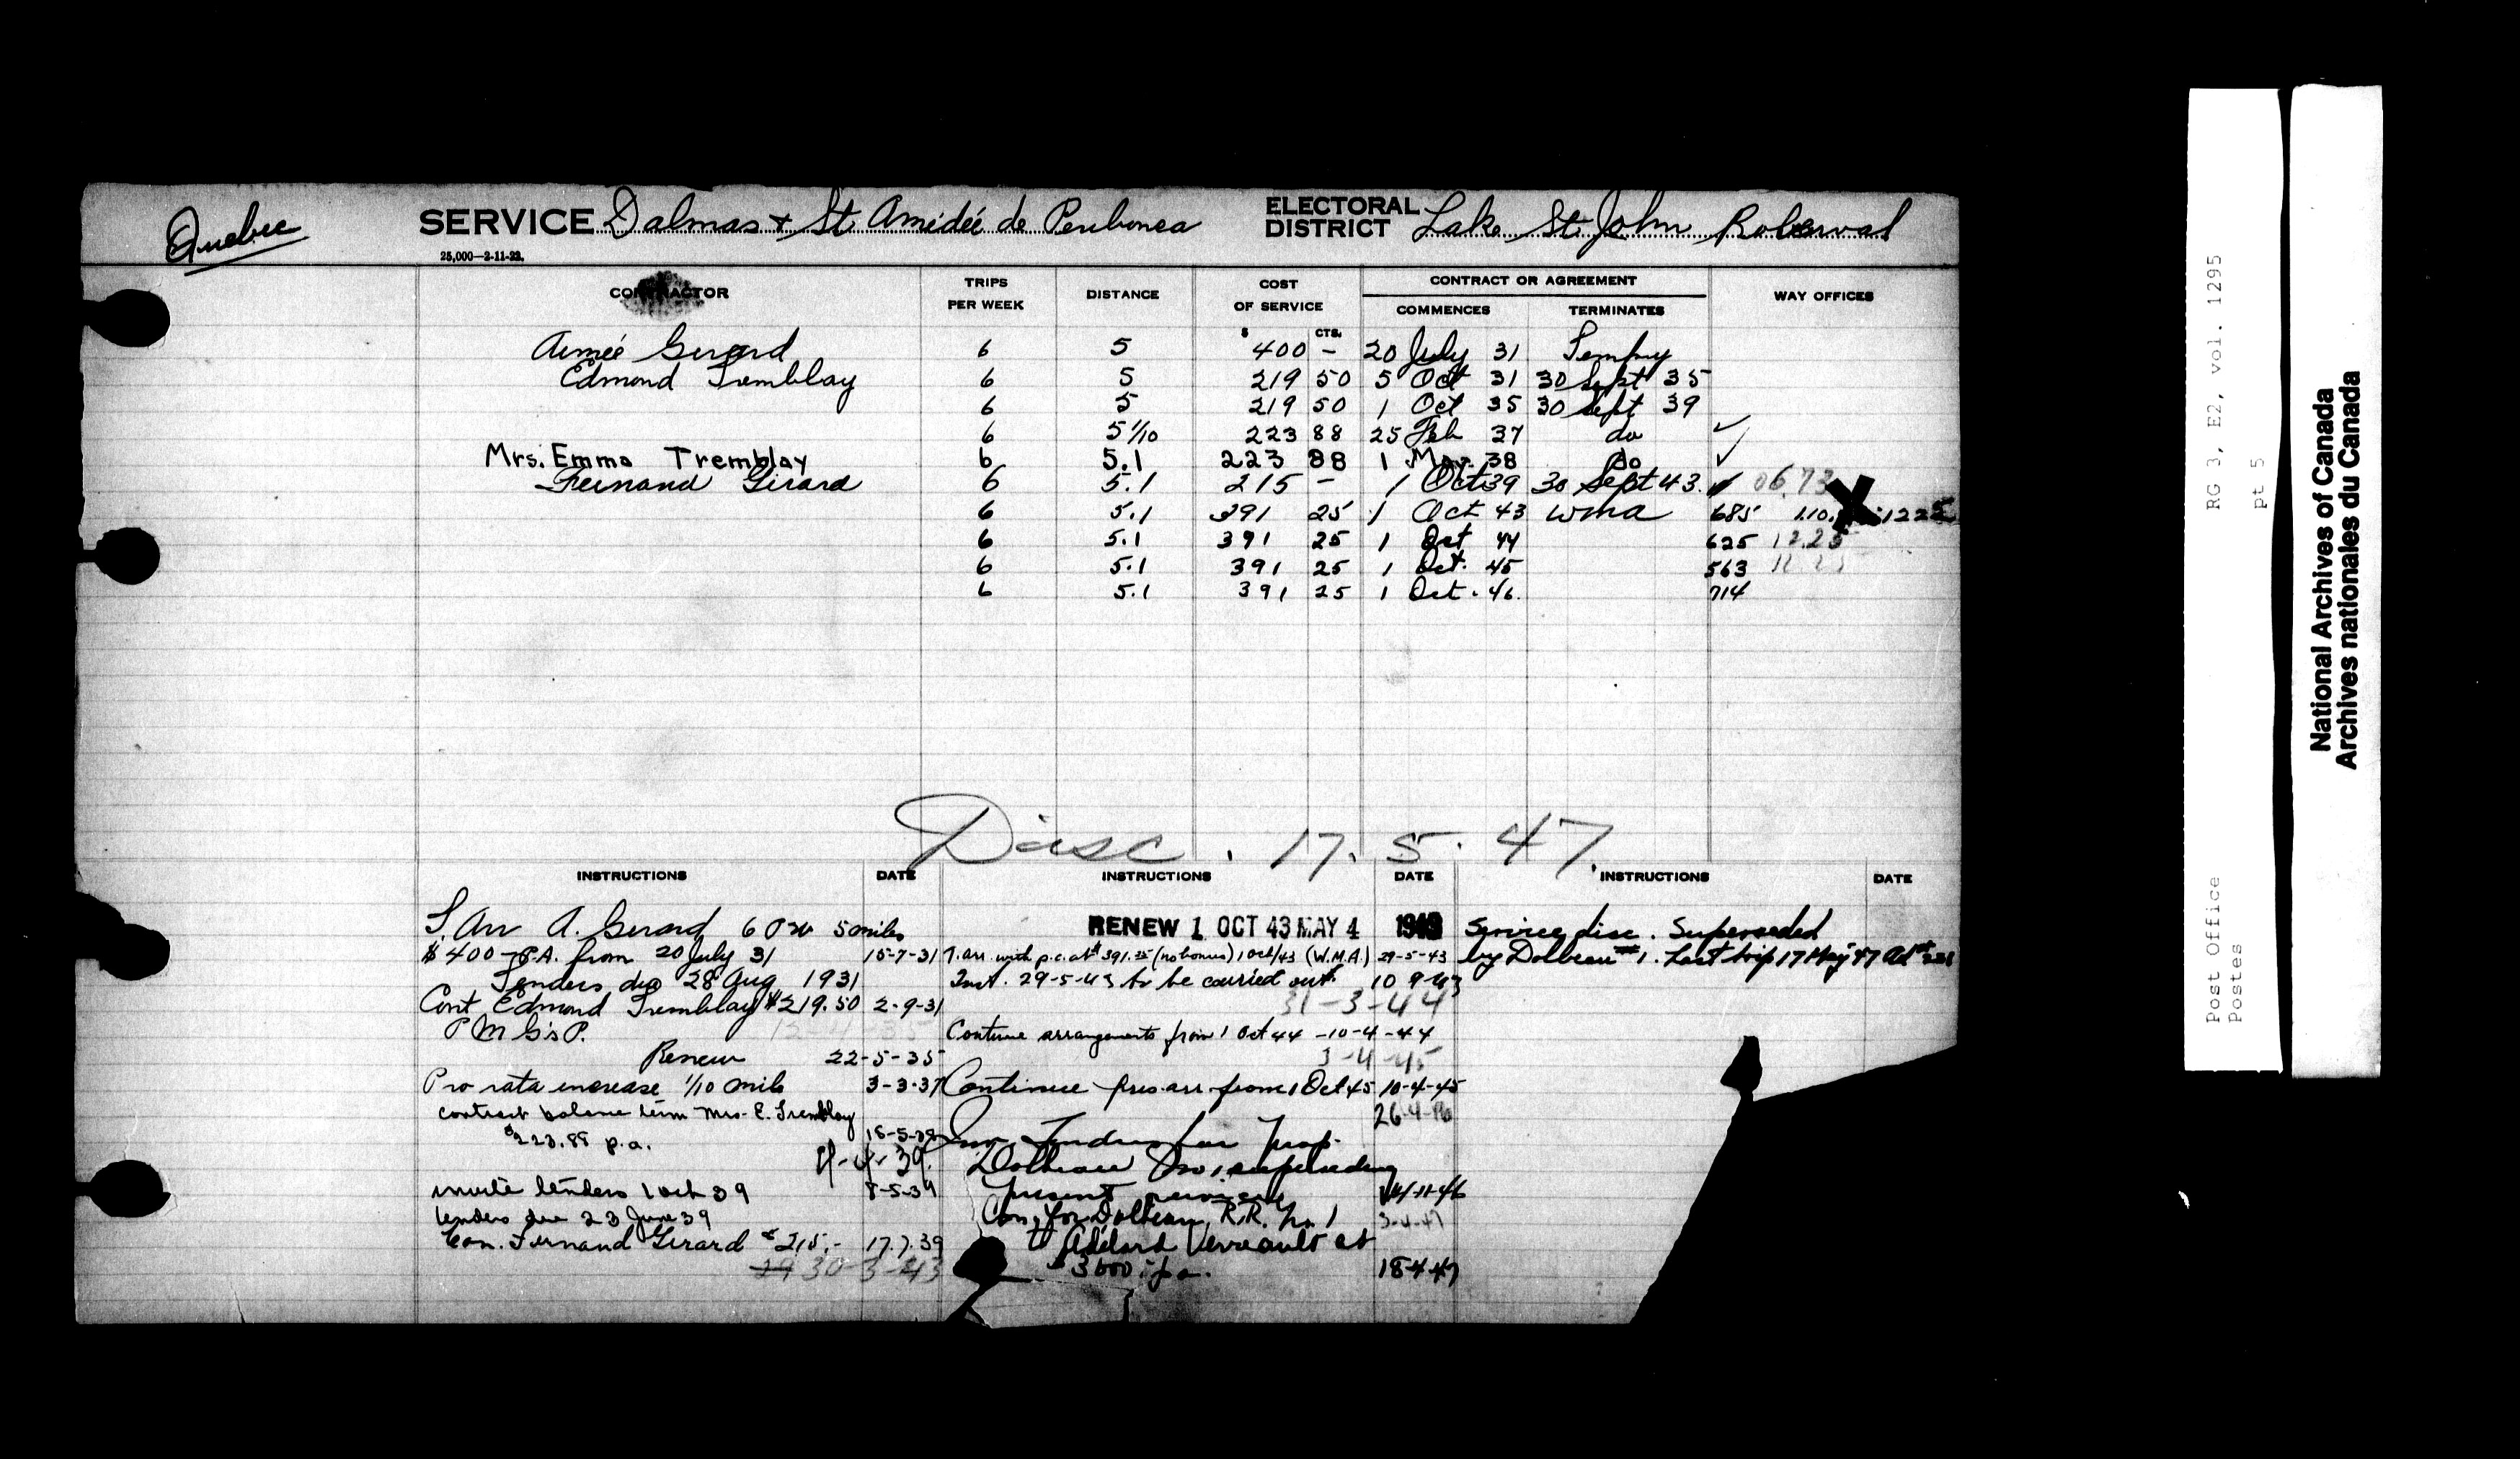 Quebec
SERVICE Dalmas & St Amidée de Peribonca
ELECTORAL DISTRICT Lake St. John Roberval
25,000—2-11-22.
CONTRACTOR TRIPS PER WEEK DISTANCE COST OF SERVICE CONTRACT OR AGREEMENT COMMENCES TERMINATES WAY OFFICES
$ CTS.
Aimée Gerard 6 5 400 - 20 July 31 Tempry
Edmond Tremblay 6 5 219 50 5 Oct 31 30 Sept 35
6 5 219 50 1 Oct 35 30 Sept 39
6 5 1/10 223 88 25 Feb 37 do ✓
Mrs. Emma Tremblay 6 5.1 223 88 1 Mar. 38 Do ✓
Fernand Girard 6 5.1 215 - 1 Oct 39 30 Sept 43. ✓ 06.73
6 5.1 391 25 1 Oct 43 WMA 685 1.10. 1225
6 5.1 391 25 1 Oct 44 625 12.25
6 5.1 391 25 1 Oct. 45 563
6 5.1 391 25 1 Oct. 46. 714
Disc. 17. 5. 47.
INSTRUCTIONS DATE
T. Arr A. Gerard 6 P W 5 miles
$400 - P.A. from 20 July 31 15-7-31
Tenders due 28 Aug 1931
Cont Edmond Tremblay $219.50 2-9-31
P M G's P.
Renew 22-5-35
Pro rata increase 1/10 mile 3-3-37
contract balance term Mrs. E. Tremblay
$223.88 p.a. 18-5-38
4-4-39.
invite tenders 1 oct 39 8-5-39
tenders due 23 June 39
Con. Fernand Girard $215.- 17.7.39
29 30-3-43
INSTRUCTIONS DATE
RENEW 1 OCT 43 MAY 4 1943
T. arr. with p.c. at $391.25 (no bonus) 1 oct/43 (W.M.A.) 29-5-43
Inst. 29-5-43 to be carried out. 10 9-43
31-3-44
Continue arrangements from 1 Oct 44 -10-4-44
3-4-45
Continue pres arr from 1 Oct 45 10-4-45
26-4-46
Inv. Tenders for Prop.
Dolbeau superseding
present service 14/11-46
Con. for Dolbeau, R.R. No. 1 3-4-47
to Adélard Verreault at
$3600 p.a. 18-4-47
INSTRUCTIONS DATE
Service disc. Superseded
by Dolbeau #1. Last trip 17 May 47
RG 3, E2, vol. 1295
pt 5
Post Office
Postes
National Archives of Canada
Archives nationales du Canada